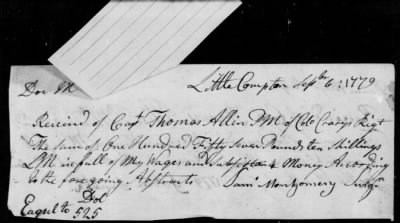 Little Compton Sepbr 6: 1779
Received of Capt Thomas Allin PM of Colo Crarys Regt
The sum of One Hundred Fifty Seven Pounds ten Shillings
LM in full of My Wages and Subsistance Money According
to the foregoing Abstracts Saml Montgomery
Dol
Eaqel to 525